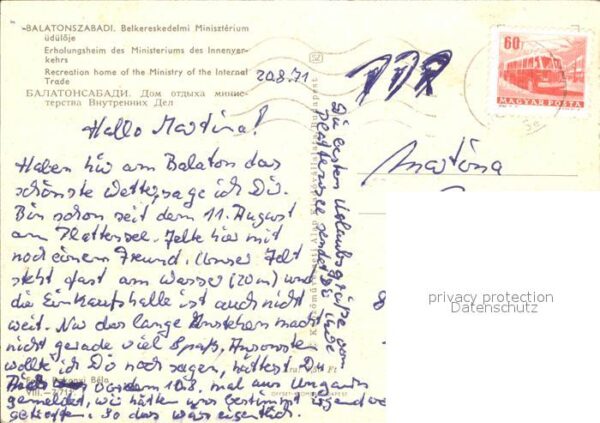 BALATONSZABADI. Belkereskedelmi Minisztérium
üdülője
Erholungsheim des Ministeriums des Innenver-
kehrs
Recreation home of the Ministry of the Internal
Trade
БАЛАТОНСАБАДИ. Дом отдыха минис-
терства Внутренних Дел
20.8.71
DDR
60f
MAGYAR POSTA
Hallo Martina!
Haben hier am Balaton das
schönste Wetter, sage ich Dir.
Bin schon seit dem 11. August
am Plattensee. Zelte hier mit
noch einem Freund. Unser Zelt
steht fast am Wasser (20m) und
die Einkaufshalle ist auch nicht
weit. Nur das lange Anstehen macht
nicht gerade viel Spaß. Ansonsten
wollte ich Dir noch sagen, hättest Du
Dich vor dem 10.8. mal aus Ungarn
gemeldet, wir hätten uns bestimmt irgendwo
getroffen. So das wärs eigentlich.
Die besten Urlaubsgrüße vom
Plattensee sendet Dir
Martina
Képzőművészeti Alap Kiadóvállalata, Budapest
privacy protection
Datenschutz